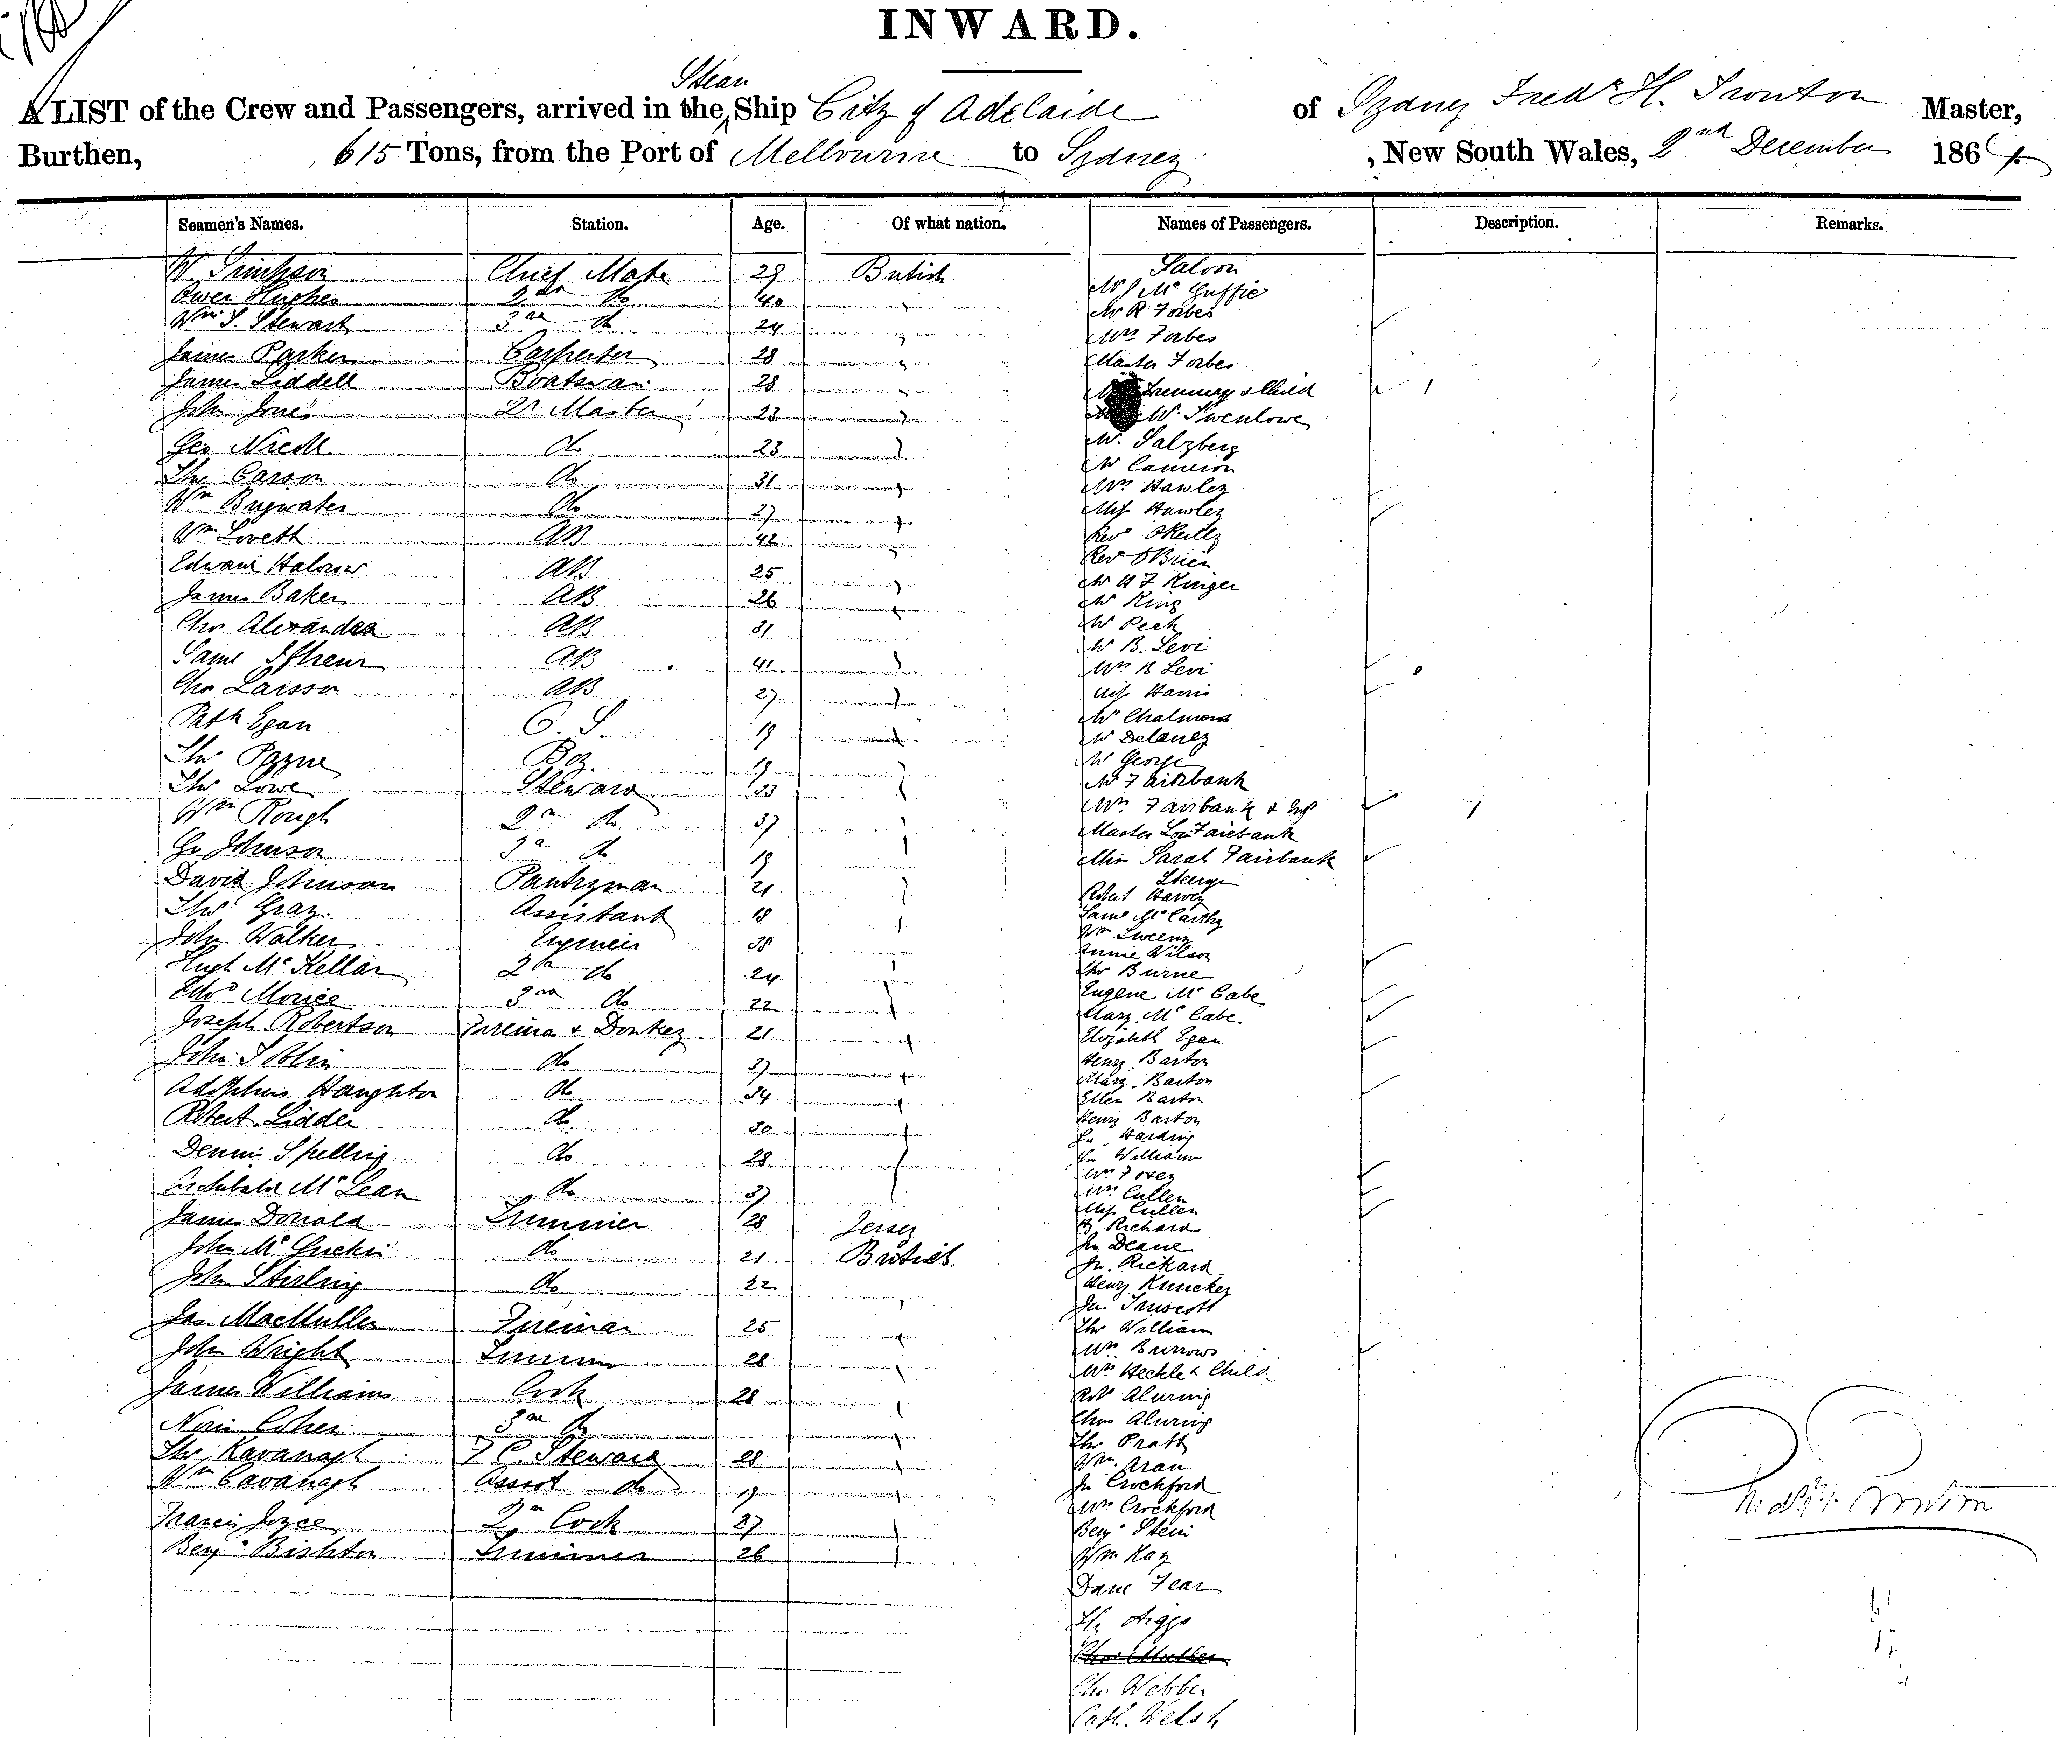 INWARD.
Steam
A LIST of the Crew and Passengers, arrived in the Ship City of Adelaide of Sydney Fredk H. Trouton Master,
Burthen, 615 Tons, from the Port of Melbourne to Sydney, New South Wales, 2nd December 1864
Seamen's Names. Station. Age. Of what nation. Names of Passengers. Description. Remarks.
W Simpson Chief Mate 29 British
Owen Hughes 2nd do 40
Wm S. Stewart 3rd do 24
James Parker Carpenter 28
James Liddell Boatswain 28
John Jones Qr Master 23
Geo do 23
Thos Carson do 31
Wm Brigwater do 27
Wm Lovett AB 42
Edward AB 25
James Baker AB 26
Chs Alexander AB 31
Saml AB 41
Chs Larsson AB 27
Patk Egan O.S. 19
Thos Payne Boy 19
Thos Lowe Steward 33
Wm Rough 2nd do 37
Go Johnson 3rd do 19
David Johnson Pantryman 21
Thos Gray Assistant 18
John Walker Engineer 38
Hugh McKellar 2nd do 24
Edwd Morice 3rd do 22
Joseph Robertson Fireman & Donkey 21
John do 37
Adolphus Haughton do 34
Robert Lidder do 30
Dennis Spelling do 28
Archibald McLean do 37
James Donald Trimmer 28 Jersey
John McGuckin do 21 British
John Stirling do 22
Jas MacMullen Fireman 25
John Wright Trimmer 28
James Williams Cook 28
3rd do
Thos Kavanagh F.C. Steward 28
Wm Cavanagh Assist do 19
Francis Joyce 2nd Cook 27
Benj Bishton Trimmer 26
Saloon
Mr J McGuffie
Mr R Forbes
Mrs Forbes
Master Forbes
& Child
W. Swenlowe
Mr Salzberg
Mr Cameron
Mrs Hawley
Miss Hawley
Rev O'Reilly
Rev O'Brien
Mr Ringer
Mr King
Mr Peck
Mr B. Levi
Mrs B Levi
Miss Harris
Mr Chalmers
Mr Delaney
Mr George
Mr Fairbank
Mrs Fairbank & Inf
Master Fairbank
Miss Sarah Fairbank
Steerage
Robert Harvey
Saml McCarthy
Wm Sweeny
Annie Wilson
Thos Burne
Eugene McCabe
Mary McCabe
Elizabeth Egan
Henry Barton
Mary Barton
Ellen Barton
Henry Barton
Jn Harding
Jn William
Mrs
Mrs Cullen
Miss Cullen
Richard
Jn Deane
Jn Richard
Henry
Jn
Thos William
Mrs Burrows
Mrs Heckle & Child
Robt Aluring
Chas Aluring
Thos Pratt
Wm
Jn Crockford
Mrs Crockford
Benj Stein
Wm Kay
Fear
Chs Webber
Cath. Welsh